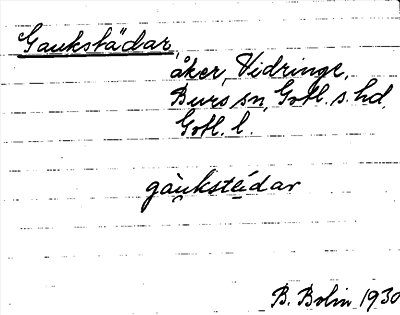 Gaukstädar,
åker, Vidringe,
Burs sn, Gotl. s. hd,
Gotl. l.
gàu̯kstéi̯dar
B. Bolin 1930